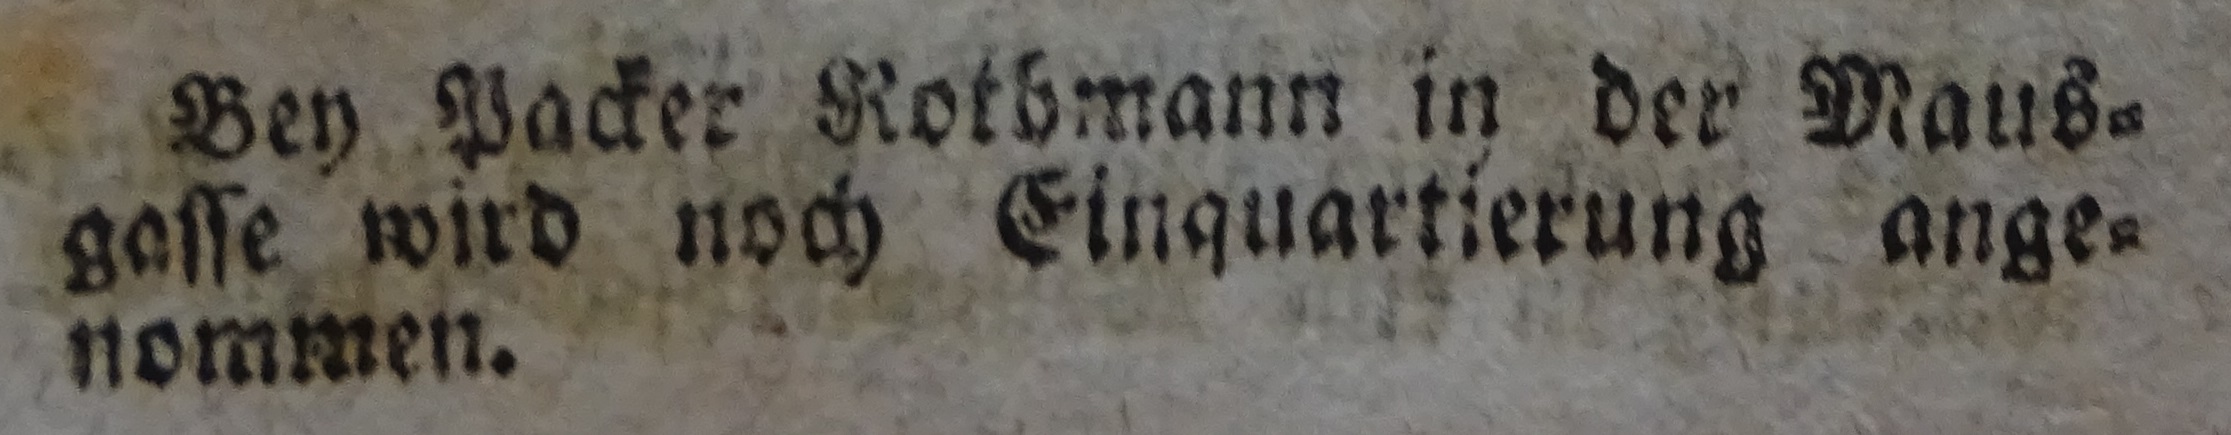 Bey Packer Rothmann in der Maus-
gasse wird noch Einquartierung ange-
nommen.